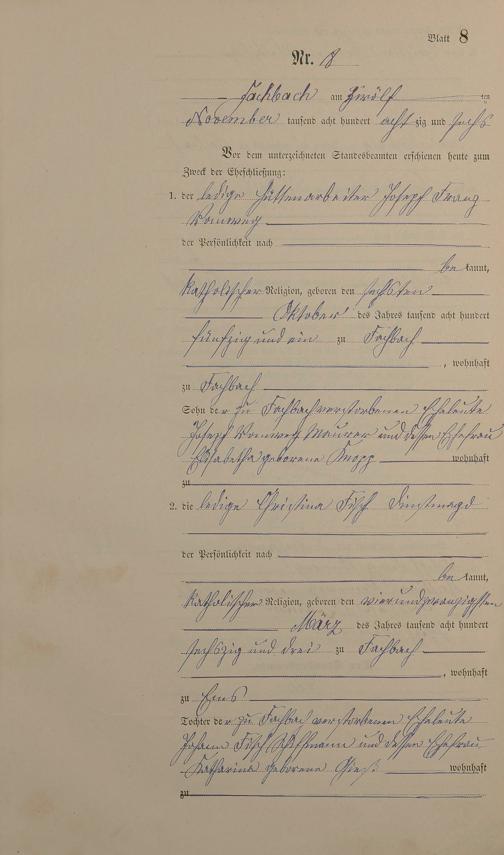 Blatt 8
Nr. 8
Fachbach am zwölf ten
November tausend acht hundert acht zig und sechs
Vor dem unterzeichneten Standesbeamten erschienen heute zum
Zweck der Eheschließung:
1. der ledige Hüttenarbeiter Josef Franz
Vomweg
der Persönlichkeit nach
be kannt,
katholischer Religion, geboren den sechsten
Oktober des Jahres tausend acht hundert
fünfzig und ein zu Fachbach
, wohnhaft
zu Fachbach
Sohn der zu Fachbach verstorbenen Eheleute
Josef Vomweg Maurer und dessen Ehefrau
Elisabetha geborene Knopp wohnhaft
zu
2. die ledige Christina Fisch Dienstmagd
der Persönlichkeit nach
be kannt,
katholischer Religion, geboren den vierundzwanzigsten
März des Jahres tausend acht hundert
sechszig und drei zu Fachbach
, wohnhaft
zu Ems
Tochter der zu Fachbach verstorbenen Eheleute
Johann Fisch Schiffmann und dessen Ehefrau
Katharina geborene wohnhaft
zu